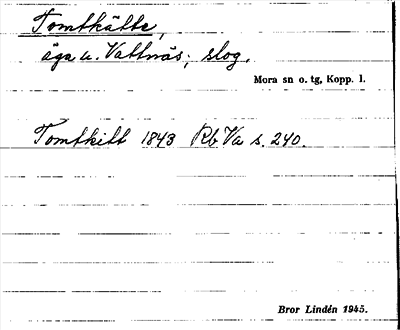 Tomtkätte,
äga u. Vattnäs; slog.
Mora sn o. tg, Kopp. l.
Tomtkitt 1843 Rb Va s. 240.
Bror Lindén 1945.